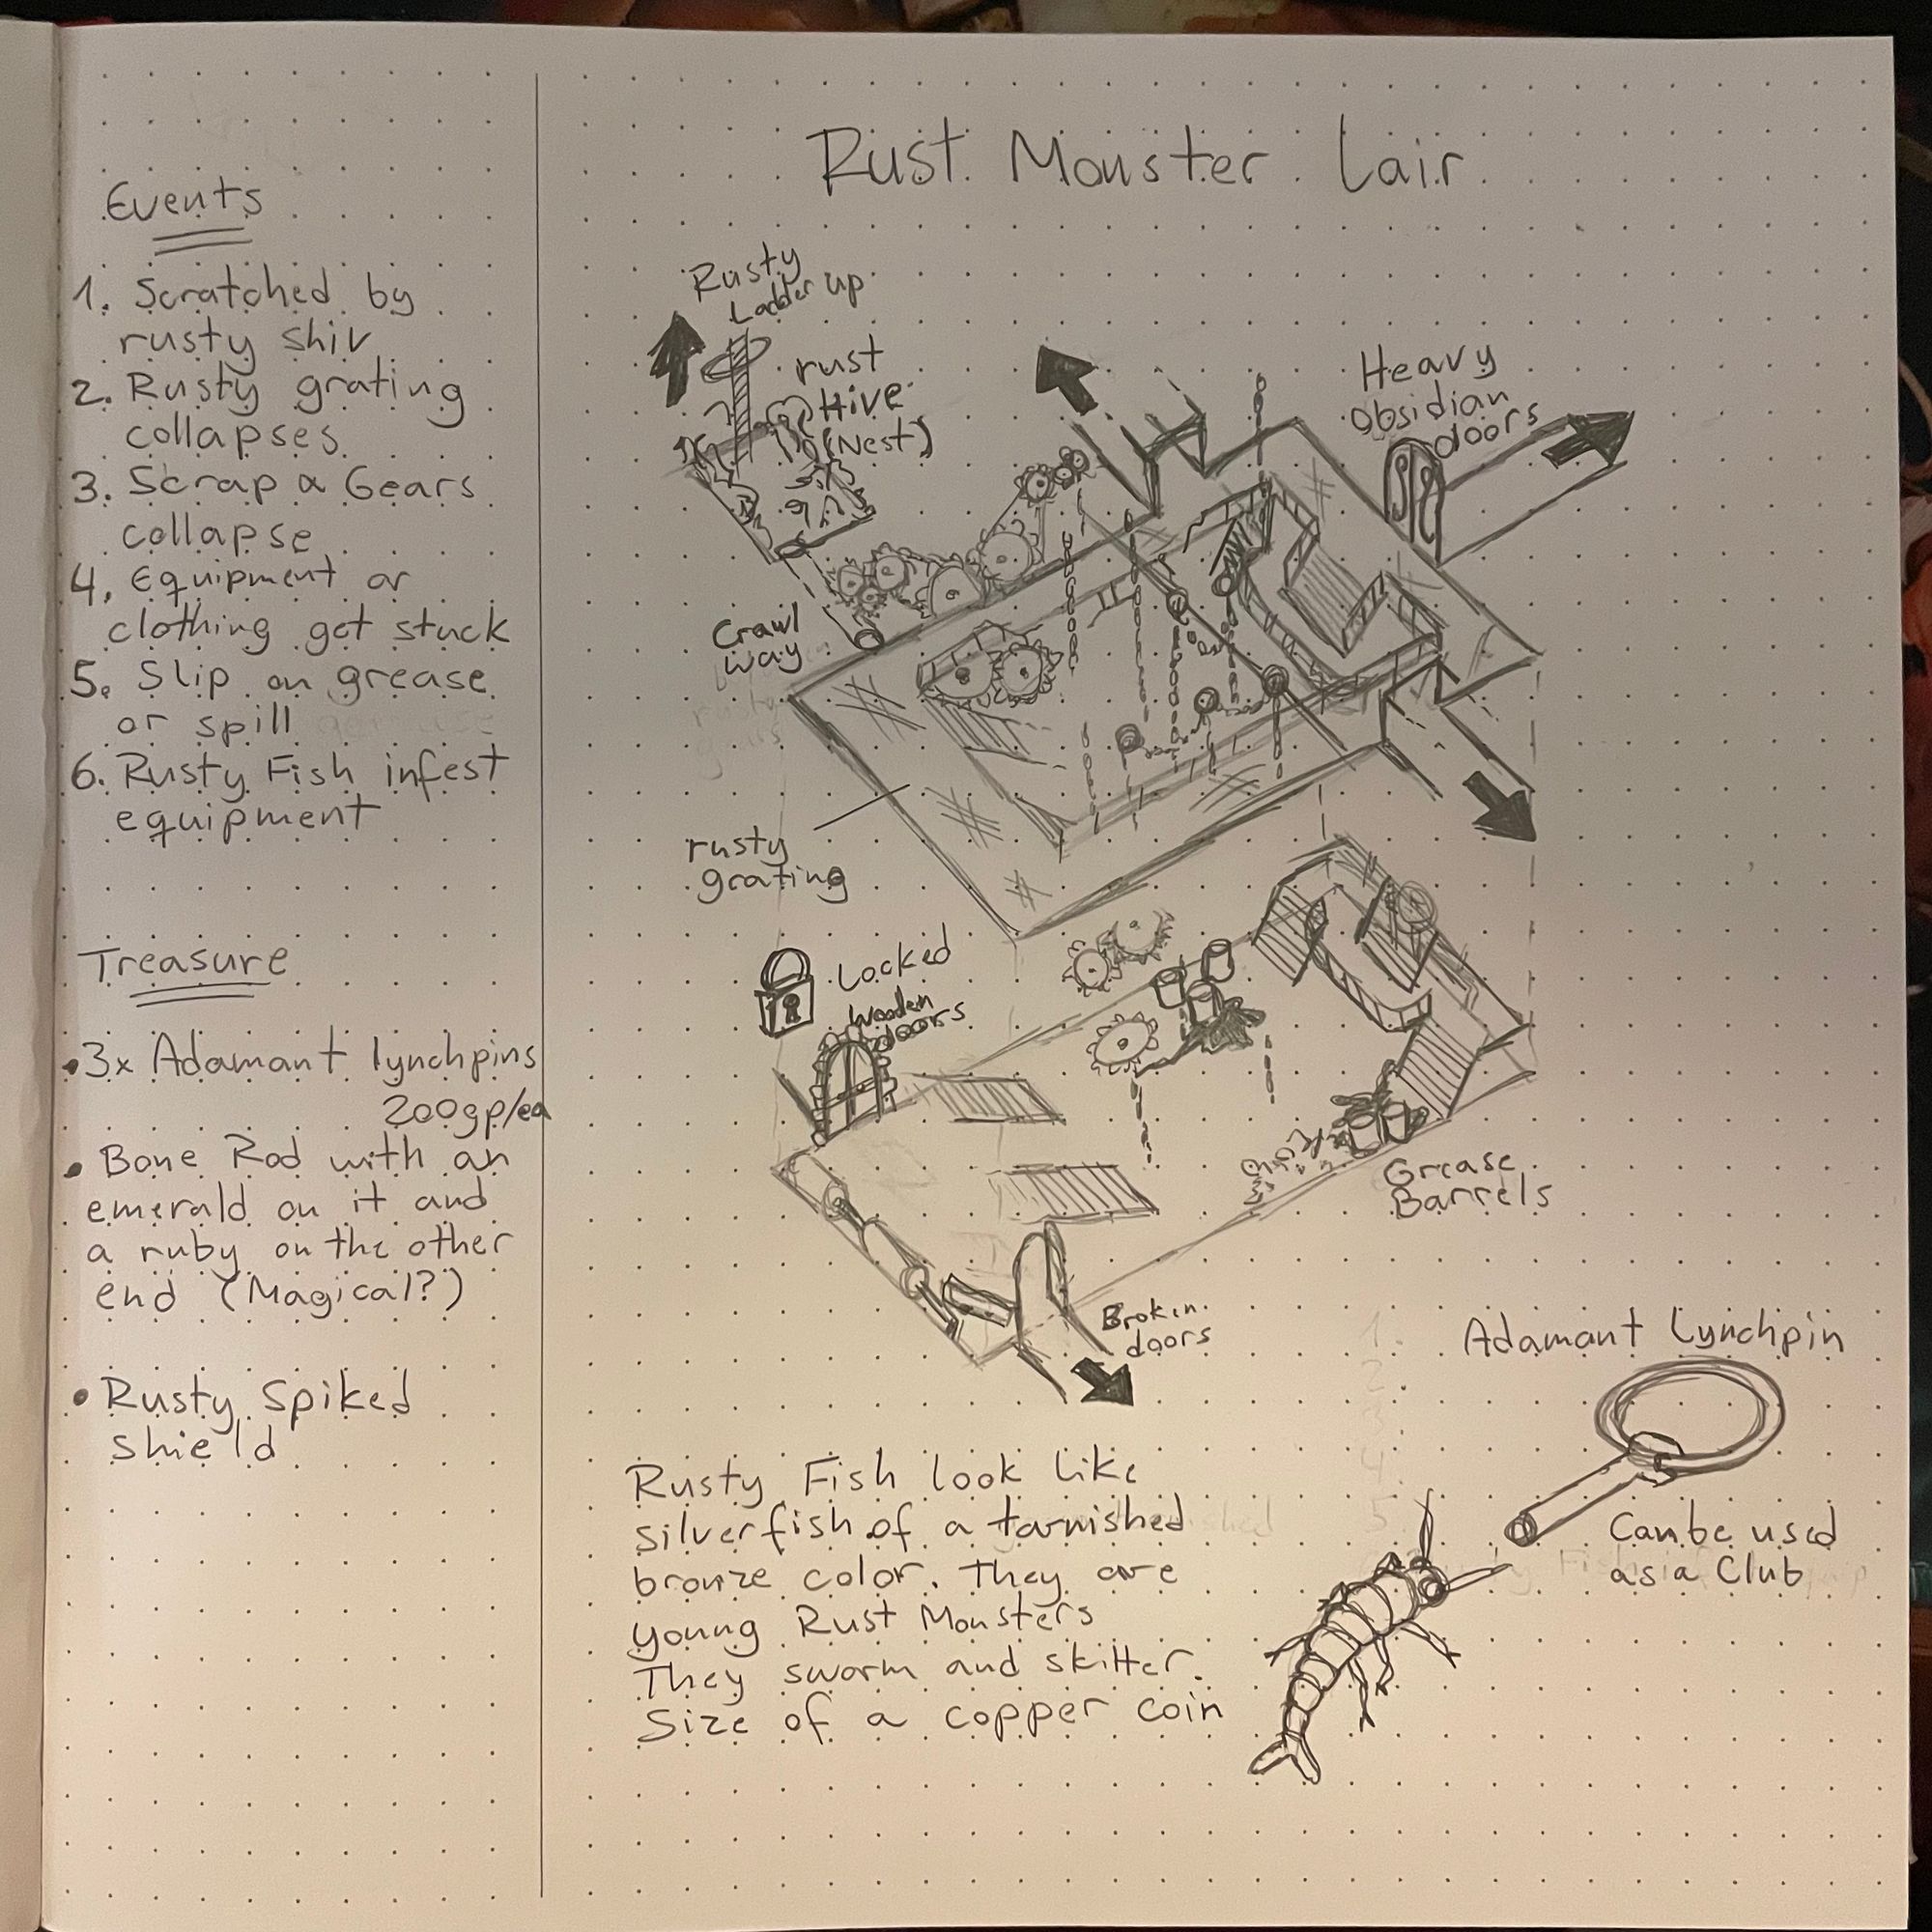 Rust Monster Lair
Events
1. Scratched by
rusty shiv
2. Rusty grating
collapses
3. Scrap & Gears
collapse
4. Equipment or
clothing get stuck
5. Slip on grease
or spill
6. Rusty Fish infest
equipment
Treasure
• 3x Adamant lynchpins
200gp/ea
• Bone Rod with an
emerald on it and
a ruby on the other
end (Magical?)
• Rusty Spiked
shield
Rusty
Ladder up
rust
Hive
(Nest)
Heavy
obsidian
doors
Crawl
way
rusty
grating
Locked
wooden
doors
Grease
Barrels
Broken
doors
Adamant Lynchpin
Can be used
as a Club
Rusty Fish look like
silverfish of a tarnished
bronze color. They are
young Rust Monsters
They swarm and skitter.
Size of a copper coin